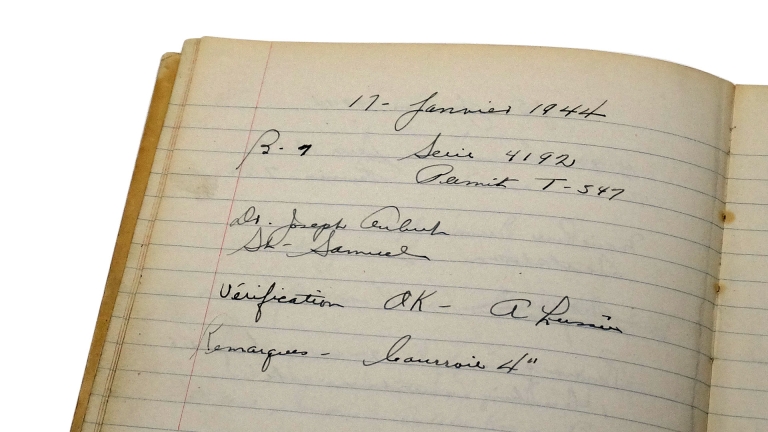 17- Janvier 1944
B-7 Serie 4192
Permit T-547
Dr. Joseph
St- Samuel
Vérification OK- A Lussier
Remarques - Courroie 4"